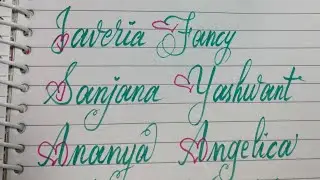 Javeria Fancy
Sanjana Yashwant
Ananya Angelica